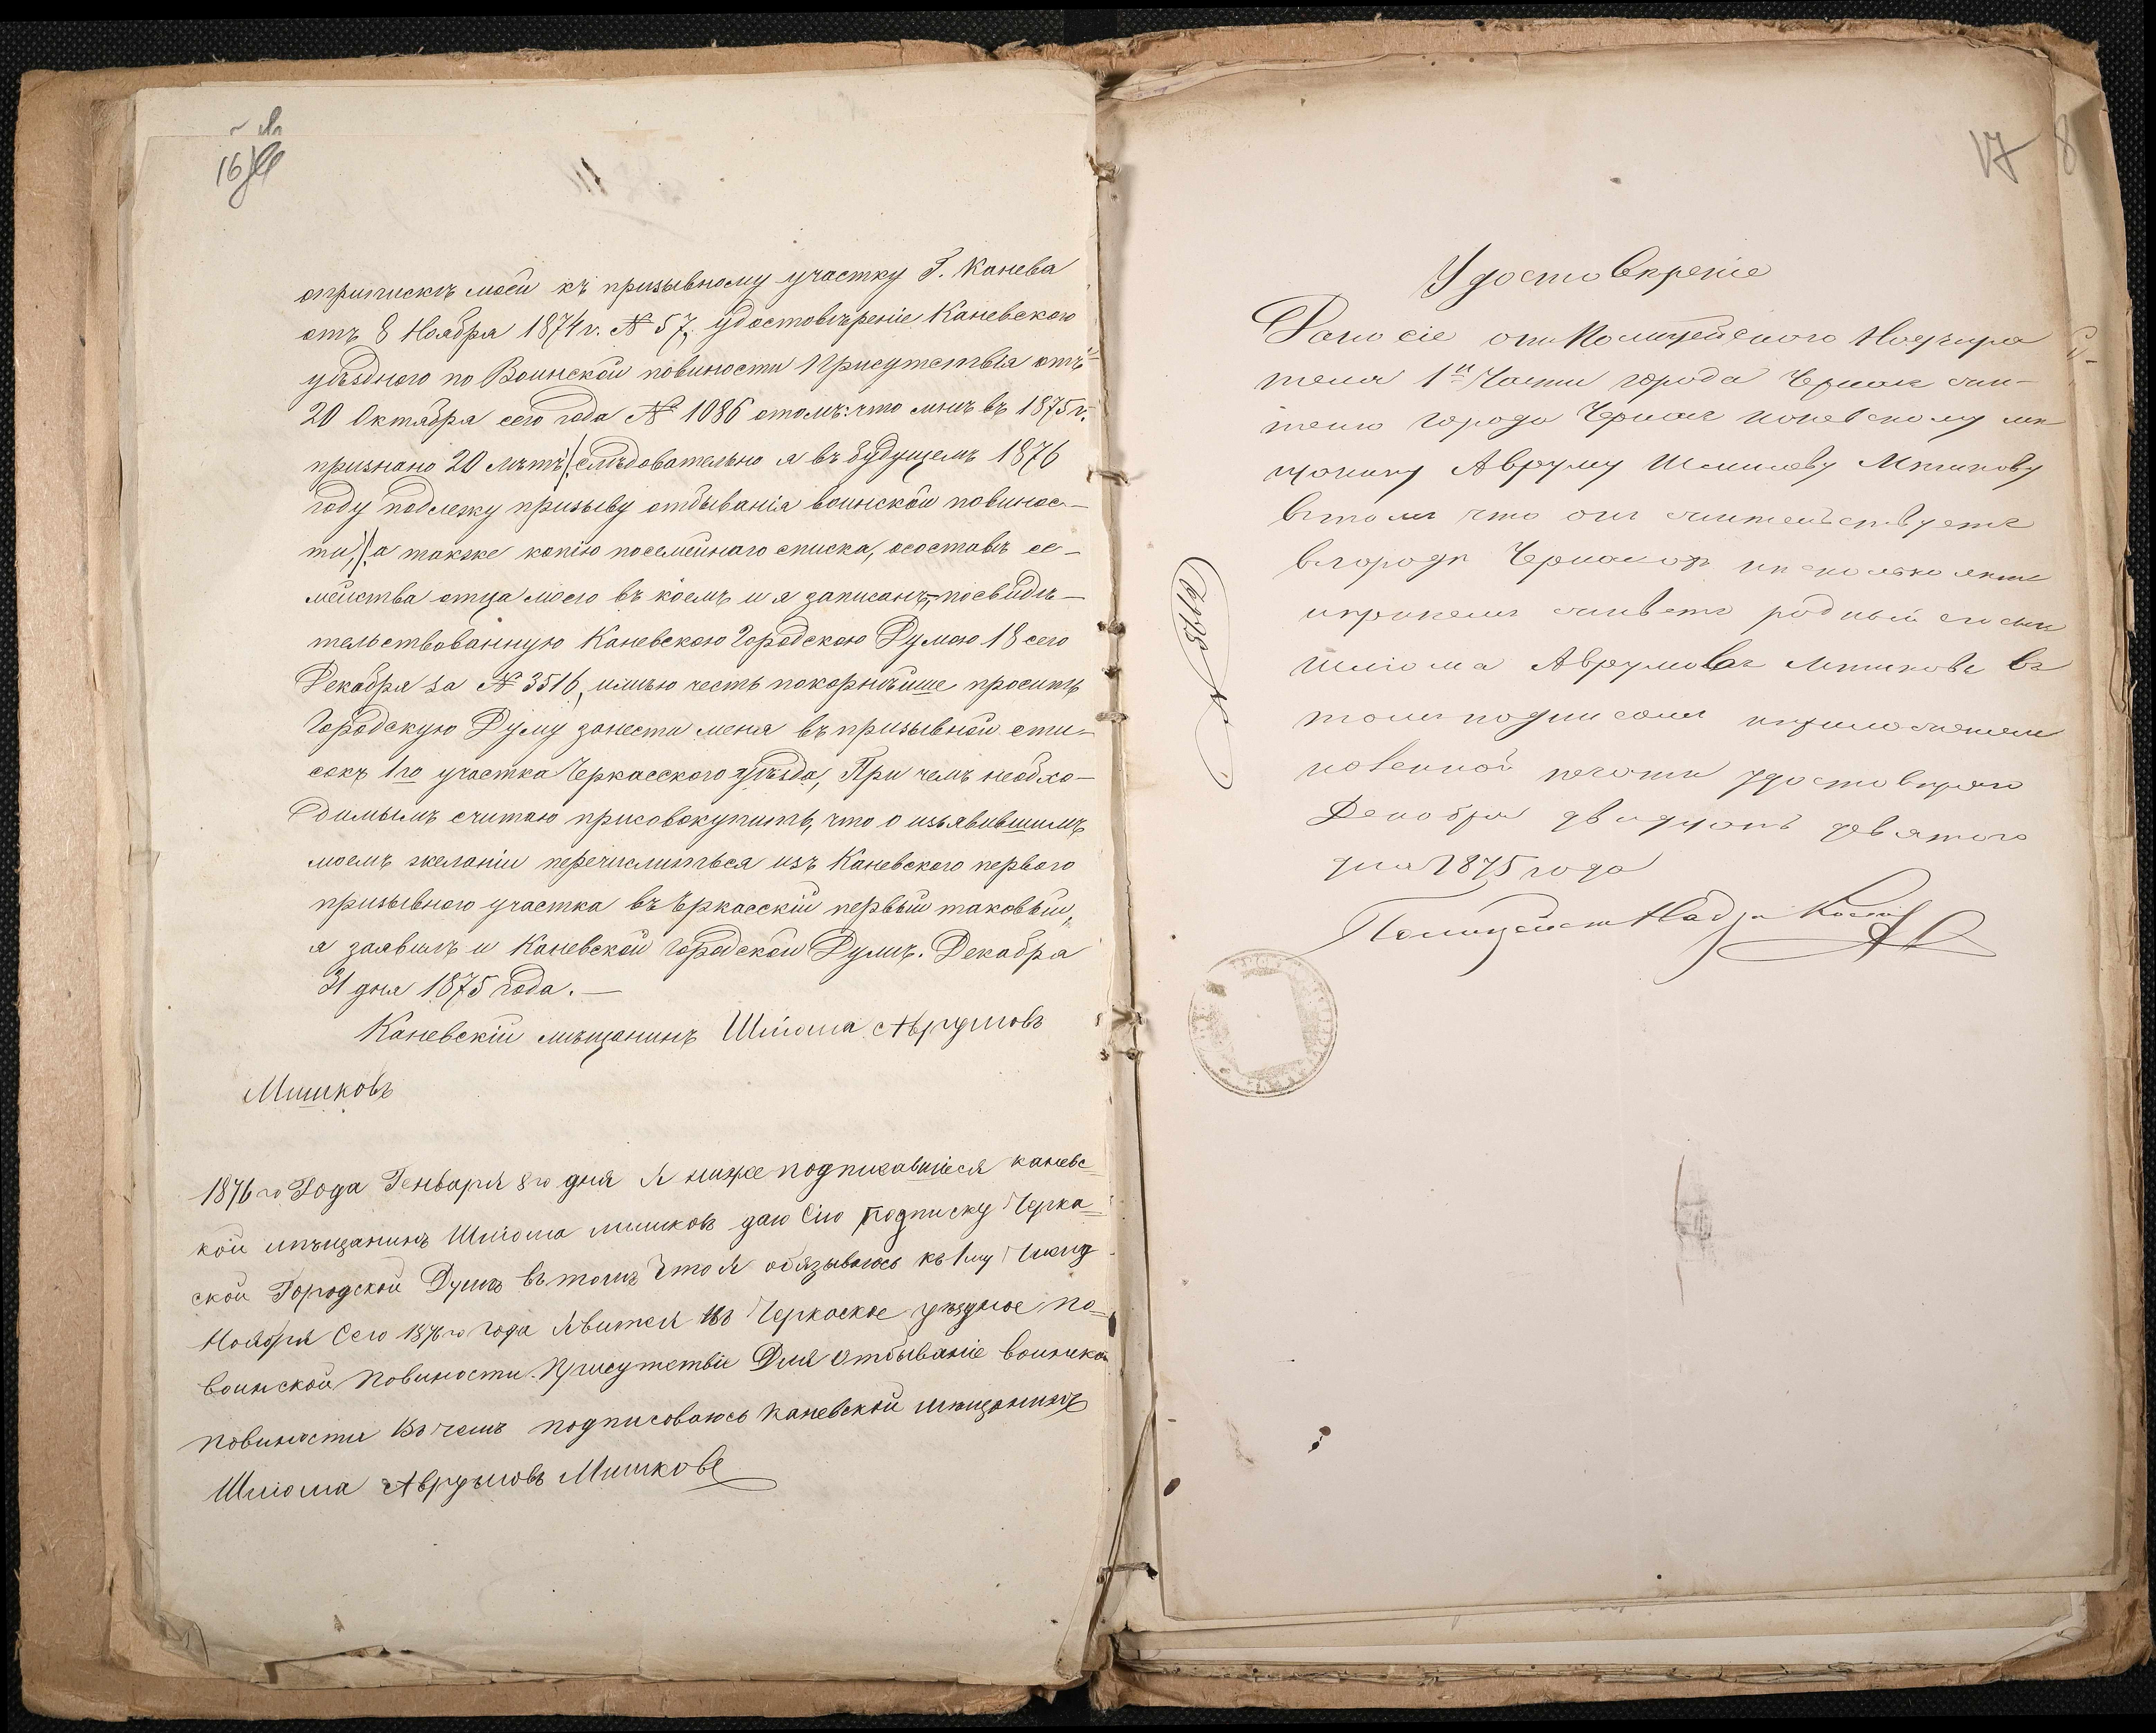 16
оприпискѣ моей къ призывному участку Г. Канева
отъ 8 Ноября 1874 г. № 57, удостовѣреніе Каневского
уѣзднаго по Воинской повиности Присутствія отъ
20 Октября сего года № 1086 отомъ: что мнѣ въ 1875 г.
признано 20 лѣтъ /: слѣдовательно я въ будущемъ 1876
году подлежу призыву отбыванія воинской повинос-
ти, /: а также копію посемейнаго списка, осоставѣ се-
мейства отца моего въ коемъ и я записанъ, посвидѣ-
тельствованную Каневскою Городскою Думою 18 сего
Декабря за № 3516, имѣю честь покорнѣйше просить
Городскую Думу занести меня въ призывной спи-
сокъ 1го участка Черкасского уѣзда, При чемъ необхо-
димымъ считаю присовокупить, что о изъявившимъ
моемъ желаніи перечислиться изъ Каневского первого
призывного участка въ Черкасскій первый таковый,
я заявилъ и Каневской Городской Думѣ. Декабря
31 дня 1875 года. —
Каневскій мѣщанинъ Шліома Аврумовъ
Мишковъ
1876 го Года Генваря 8 го дня Я ниже подписавшіеся каневс-
кой мѣщанинъ Шліома мишковъ даю Сію подписку Черка-
ской Городской Думѣ въ томъ Что Я обязываюсь къ 1му Числу
Ноября Сего 1876 го года Явится Въ Черкаское уѣздное по-
воинской Повиности Присутствіе Для Отбываніе воинской
повиности Въ чемъ подписоваюсь каневской мѣщанинъ
Шліома Аврумовъ Мишковъ
17
8
Удостовѣреніе
Дано сіе отъ Полицейского Надзира
теля 1й Части города Черкас жи-
телю города Черкас каневскому мѣ
щанину Авруму Шмилеву Мишкову
втомъ что онъ жительствуетъ
вгородѣ Черкасах нѣсколько лѣтъ
ипринемъ живетъ родный его сынъ
Шліома Аврумовъ Мишковъ въ
томъ подписомъ иприложеніем
казенной печати удостовѣряю
Декабря двадцать девятого
дня 1875 года
Полицейск Надзи
№ 2578